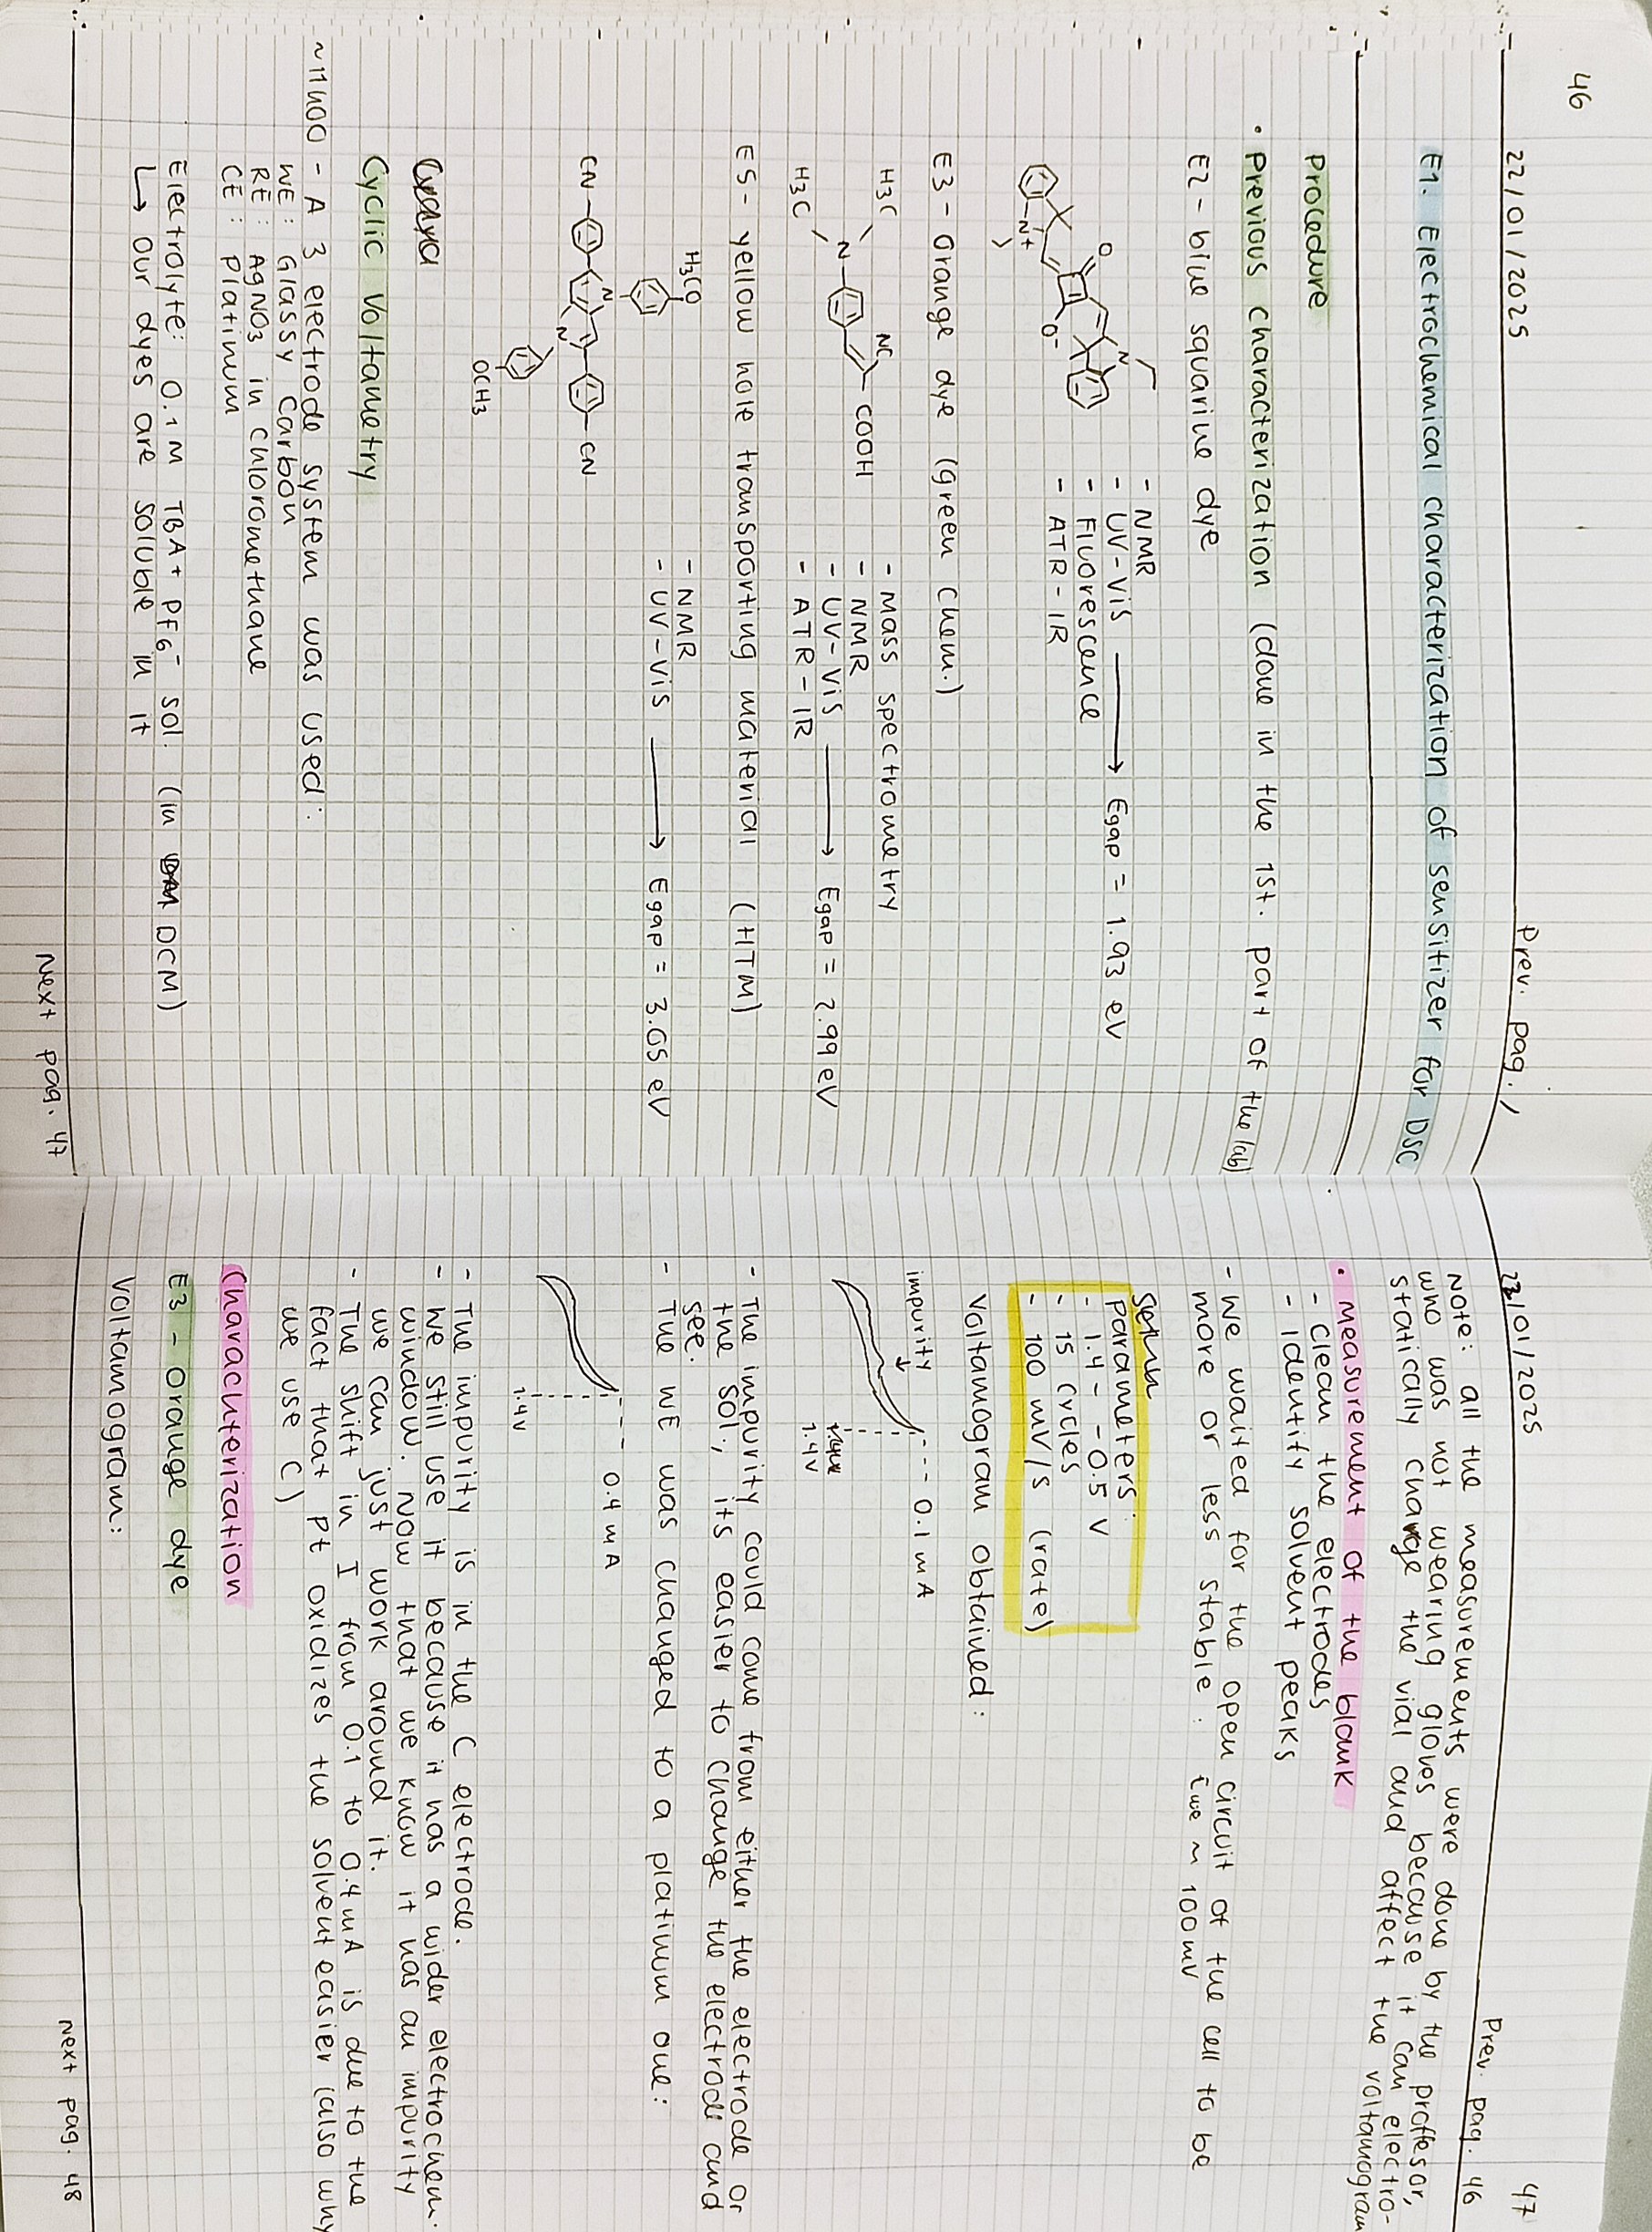 46
22/01/2025
Prev. pag. /
E1. Electrochemical characterization of sensitizer for DSC
Procedure
• Previous characterization (done in the 1st. part of the lab)
E2 - blue squarine dye
- NMR
- UV-Vis → Egap = 1.93 eV
- Fluorescence
- ATR-IR
O
N
N+
O-
E3 - Orange dye (green chem.)
H3C
NC
COOH
N
H3C
- Mass spectrometry
- NMR
- UV-Vis → Egap = 2.99 eV
- ATR-IR
E5 - yellow hole transporting material (HTM)
H3CO
CN
N
N
CN
OCH3
- NMR
- UV-Vis → Egap = 3.05 eV
Cyclic Voltametry
~11h00 - A 3 electrode system was used:
WE: Glassy Carbon
RE: AgNO3 in chloromethane
CE: Platinum
Electrolyte: 0.1 M TBA+ PF6- sol. (in DCM)
↳ our dyes are soluble in it
Next pag. 47
47
22/01/2025
Prev. pag. 46
Note: all the measurements were done by the proffesor,
who was not wearing gloves because it can electro-
statically charge the vial and affect the voltamogram
• Measurement of the blank
- Clean the electrodes
- Identify solvent peaks
- We waited for the open circuit of the cell to be
more or less stable: iwe ~ 100mV
Parameters:
- 1.4 - -0.5 V
- 15 cycles
- 100 mV/s (rate)
Voltamogram obtained:
impurity
0.1 mA
1.4V
- The impurity could come from either the electrode or
the sol., its easier to change the electrode and
see.
- The WE was changed to a platinum one:
0.4 mA
1.4V
- The impurity is in the C electrode.
- We still use it because it has a wider electrochem.
window. Now that we know it has an impurity
we can just work around it.
- The shift in I from 0.1 to 0.4 mA is due to the
fact that Pt oxidizes the solvent easier (also why
we use C)
Characterization
E3 - Orange dye
Voltamogram:
Next pag. 48